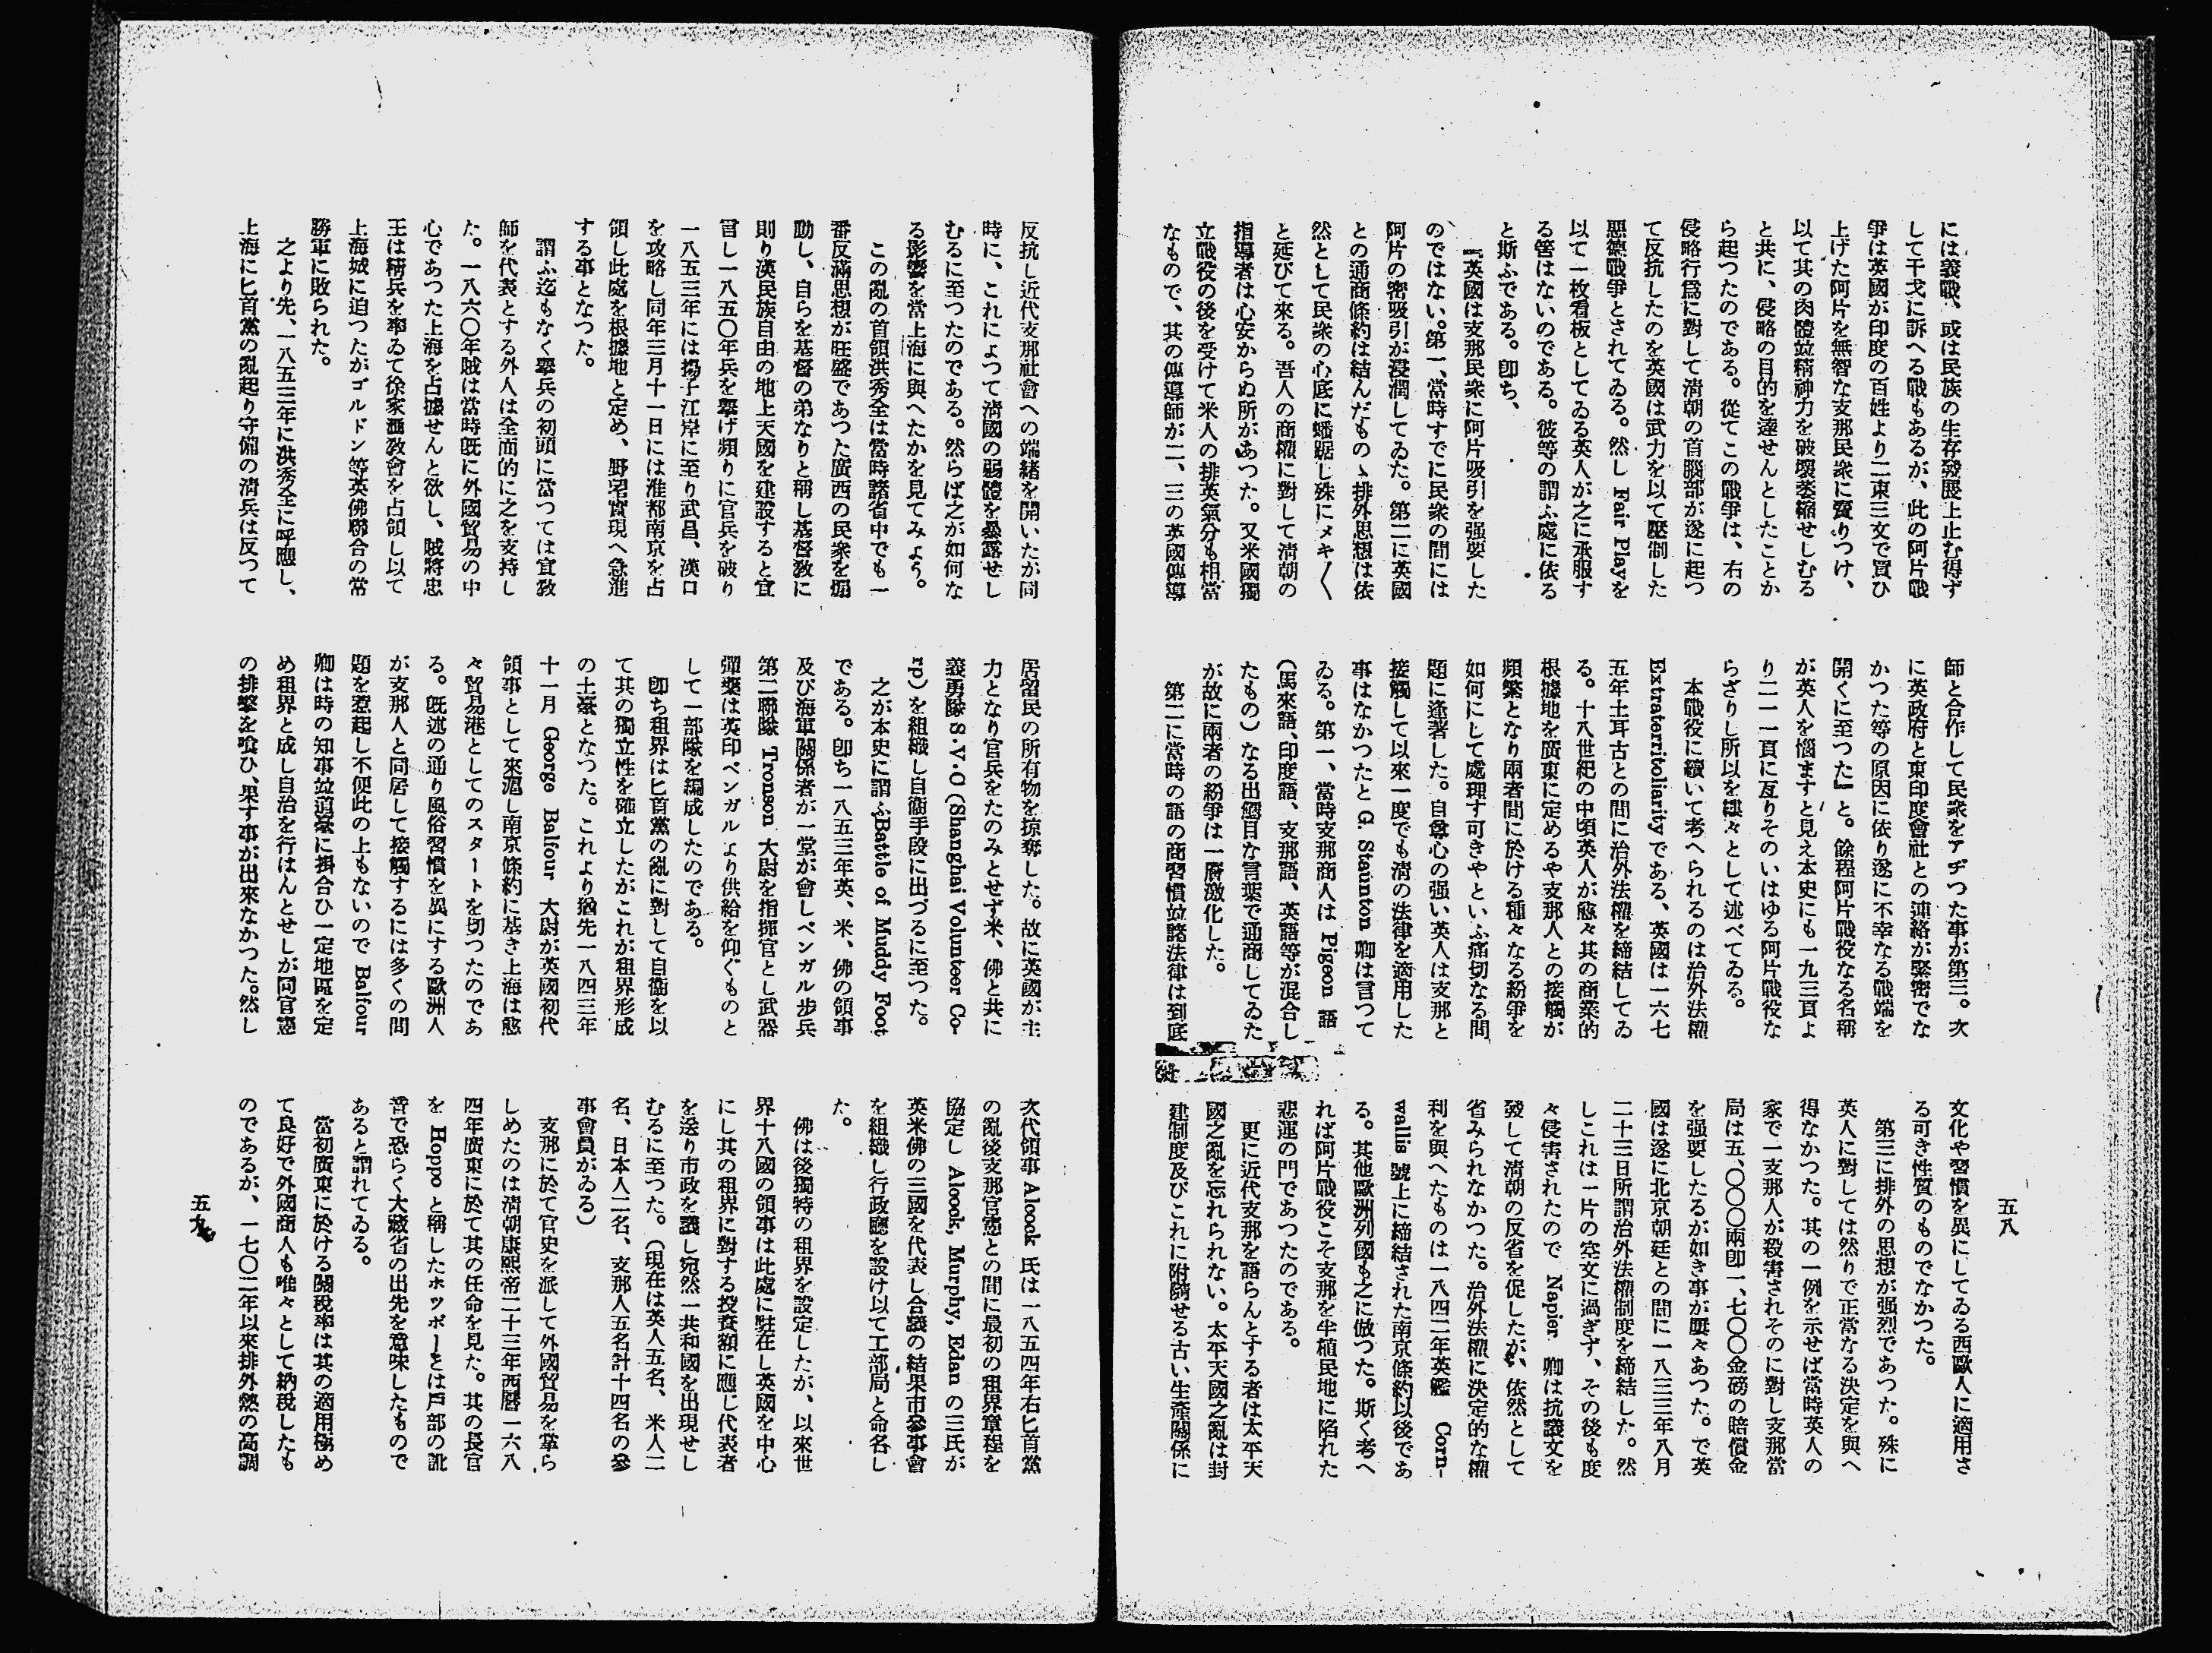 には義戰、或は民族の生存發展上止む得ず
して干戈に訴へる戰もあるが、此の阿片戰
爭は英國が印度の百姓より二束三文で買ひ
上げた阿片を無智な支那民衆に賣りつけ、
以て其の肉體並精神力を破壞萎縮せしむる
と共に、侵略の目的を達せんとしたことか
ら起つたのである。從てこの戰爭は、右の
侵略行爲に對して清朝の首腦部が遂に起つ
て反抗したのを英國は武力を以て壓制した
惡德戰爭とされてゐる。然し Fair Playを
以て一枚看板としてゐる英人が之に承服す
る筈はないのである。彼等の謂ふ處に依る
と斯ふである。卽ち、
『英國は支那民衆に阿片吸引を强要した
のではない。第一、當時すでに民衆の間には
阿片の密吸引が浸潤してゐた。第二に英國
との通商條約は結んだものゝ排外思想は依
然として民衆の心底に蟠踞し殊にメキ〱
と延びて來る。吾人の商權に對して清朝の
指導者は心安からぬ所があつた。又米國獨
立戰役の後を受けて米人の排英氣分も相當
なもので、其の傳導師が二、三の英國傳導
師と合作して民衆をアヂつた事が第三。次
に英政府と東印度會社との連絡が緊密でな
かつた等の原因に依り遂に不幸なる戰端を
開くに至つた』と。餘程阿片戰役なる名稱
が英人を惱ますと見え本史にも一九三頁よ
り二一一頁に亙りそのいはゆる阿片戰役な
らざりし所以を縷々として述べてゐる。
本戰役に續いて考へられるのは治外法權
Extraterritoliarity である、英國は一六七
五年土耳古との間に治外法權を締結してゐ
る。十八世紀の中頃英人が愈々其の商業的
根據地を廣東に定めるや支那人との接觸が
頻繁となり兩者間に於ける種々なる紛爭を
如何にして處理す可きやといふ痛切なる問
題に逢著した。自尊心の强い英人は支那と
接觸して以來一度でも清の法律を適用した
事はなかつたと G. Staunton 卿は言つて
ゐる。第一、當時支那商人は Pigeon 語
(馬來語、印度語、支那語、英語等が混合し
たもの)なる出鱈目な言葉で通商してゐた
が故に兩者の紛爭は一層激化した。
第二に當時の語の商習慣並諸法律は到底
文化や習慣を異にしてゐる西歐人に適用さ
る可き性質のものでなかつた。
第三に排外の思想が强烈であつた。殊に
英人に對しては然りで正當なる決定を與へ
得なかつた。其の一例を示せば當時英人の
家で一支那人が殺害されそのに對し支那當
局は五、〇〇〇兩卽一、七〇〇金磅の賠償金
を强要したるが如き事が屢々あつた。で英
國は遂に北京朝廷との間に一八三三年八月
二十三日所謂治外法權制度を締結した。然
しこれは一片の空文に過ぎず、その後も度
々侵害されたので Napier 卿は抗議文を
發して清朝の反省を促したが、依然として
省みられなかつた。治外法權に決定的な權
利を與へたものは一八四二年英艦 Corn-
wallis 號上に締結された南京條約以後であ
る。其他歐洲列國も之に倣つた。斯く考へ
れば阿片戰役こそ支那を半植民地に陷れた
悲運の門であつたのである。
更に近代支那を語らんとする者は太平天
國之亂を忘れられない。太平天國之亂は封
建制度及びこれに附隨せる古い生產關係に
五八
反抗し近代支那社會への端緒を開いたが同
時に、これによつて淸國の弱體を暴露せし
むるに至つたのである。然らば之が如何な
る影響を當上海に與へたかを見てみよう。
この亂の首領洪秀全は當時諸省中でも一
番反滿思想が旺盛であつた廣西の民衆を煽
動し、自らを基督の弟なりと稱し基督敎に
則り漢民族自由の地上天國を建設すると宣
言し一八五〇年兵を擧げ頻りに官兵を破り
一八五三年には揚子江岸に至り武昌、漢口
を攻略し同年三月十一日には准都南京を占
領し此處を根據地と定め、野望實現へ急進
する事となつた。
謂ふ迄もなく擧兵の初頭に當つては宣敎
師を代表とする外人は全面的に之を支持し
た。一八六〇年賊は當時旣に外國貿易の中
心であつた上海を占據せんと欲し、賊將忠
王は精兵を率ゐて徐家滙敎會を占領し以て
上海城に迫つたがゴルドン等英佛聯合の常
勝軍に敗られた。
之より先、一八五三年に洪秀全に呼應し、
上海に匕首黨の亂起り守備の淸兵は反つて
居留民の所有物を掠奪した。故に英國が主
力となり官兵をたのみとせず米、佛と共に
義勇隊 S.V.C (Shanghai Volunteer Co-
rp)を組織し自衞手段に出づるに至つた。
之が本史に謂ふBattle of Muddy Foot
である。卽ち一八五三年英、米、佛の領事
及び海軍關係者が一堂が會しベンガル步兵
第二聯隊 Tronson 大尉を指揮官とし武器
彈藥は英印ベンガルより供給を仰ぐものと
して一部隊を編成したのである。
卽ち租界は匕首黨の亂に對して自衞を以
て其の獨立性を確立したがこれが租界形成
の土臺となつた。これより猶先一八四三年
十一月 George Balfour 大尉が英國初代
領事として來滬し南京條約に基き上海は愈
々貿易港としてのスタートを切つたのであ
る。旣述の通り風俗習慣を異にする歐洲人
が支那人と同居して接觸するには多くの問
題を惹起し不便此の上もないので Balfour
卿は時の知事並道臺に掛合ひ一定地區を定
め租界と成し自治を行はんとせしが同官憲
の排擊を喰ひ、果す事が出來なかつた。然し
次代領事 Alcock 氏は一八五四年右匕首黨
の亂後支那官憲との間に最初の租界章程を
協定し Alcock, Murphy, Edan の三氏が
英米佛の三國を代表し合議の結果市參事會
を組織し行政廳を設け以て工部局と命名し
た。
佛は後獨特の租界を設定したが、以來世
界十八國の領事は此處に駐在し英國を中心
にし其の租界に對する投資額に應じ代表者
を送り市政を議し宛然一共和國を出現せし
むるに至つた。(現在は英人五名、米人二
名、日本人二名、支那人五名計十四名の參
事會員がゐる)
支那に於て官史を派して外國貿易を掌ら
しめたのは清朝康熙帝二十三年西曆一六八
四年廣東に於て其の任命を見た。其の長官
を Hoppo と稱したホッポーとは戶部の訛
音で恐らく大藏省の出先を意味したもので
あると謂れてゐる。
當初廣東に於ける關稅率は其の適用極め
て良好で外國商人も唯々として納稅したも
のであるが、一七〇二年以來排外熱の高調
五九